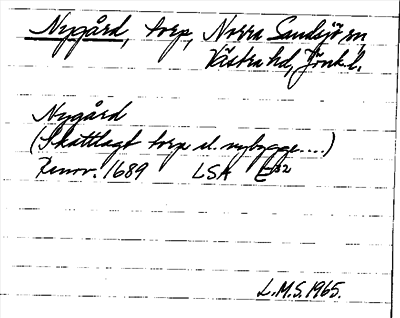 Nygård, torp, Norra Sandsjö sn,
Västra hd, Jönk. l.
Nygård
(Skattlagt torp el. nybygge....)
Renov. 1689 LSA E32
L.M.S. 1965.